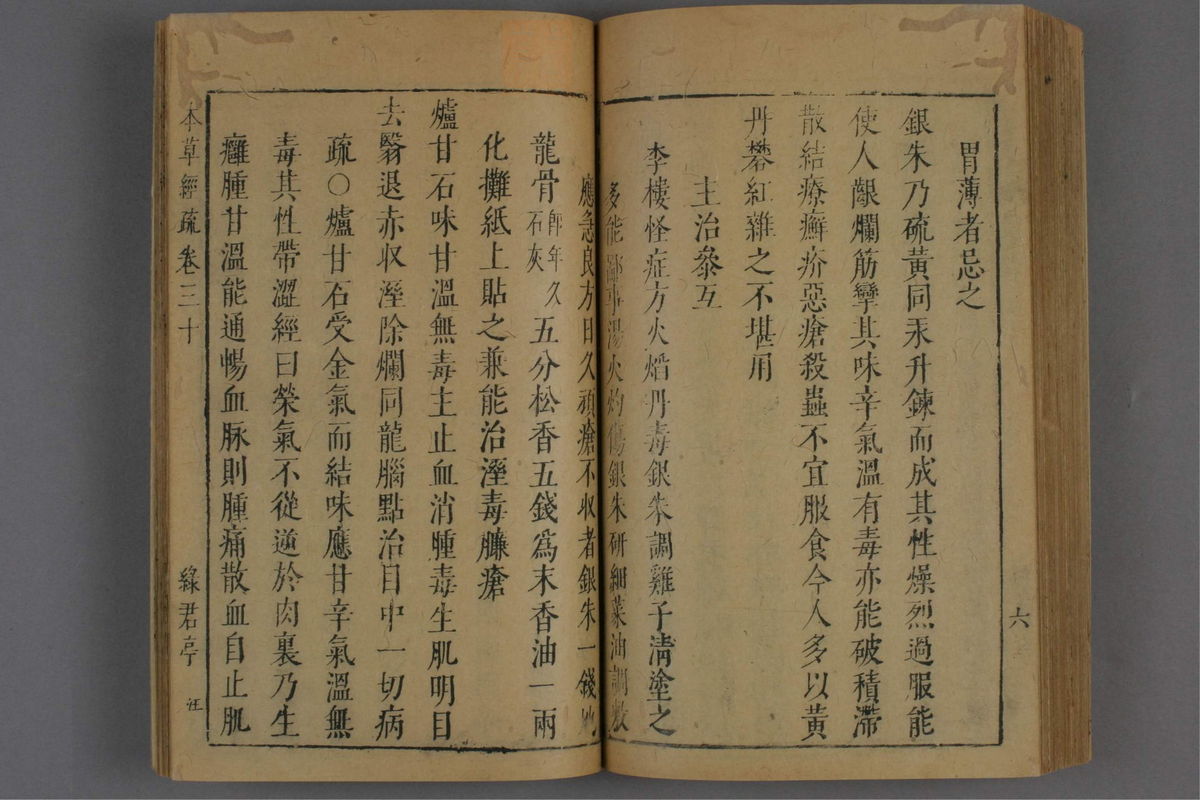 六
胃薄者忌之
銀朱乃硫黃同汞升鍊而成其性燥烈過服能
使人齦爛筋攣其味辛氣溫有毒亦能破積滯
散結療癬疥惡瘡殺蟲不宜服食今人多以黃
丹礬紅雜之不堪用
主治參互
李樓怪症方火熖丹毒銀朱調雞子清塗之
多能鄙事湯火灼傷銀朱研細菜油調敷
應急良方日久頑瘡不收者銀朱一錢
龍骨年久石灰五分松香五錢爲末香油一兩
化攤紙上貼之兼能治溼毒臁瘡
爐甘石味甘溫無毒主止血消腫毒生肌明目
去翳退赤収溼除爛同龍腦點治目中一切病
疏○爐甘石受金氣而結味應甘辛氣溫無
毒其性帶澀經曰榮氣不從逆於肉裏乃生
癰腫甘溫能通暢血脉則腫痛散血自止肌
本草經疏 卷三十 綠君亭